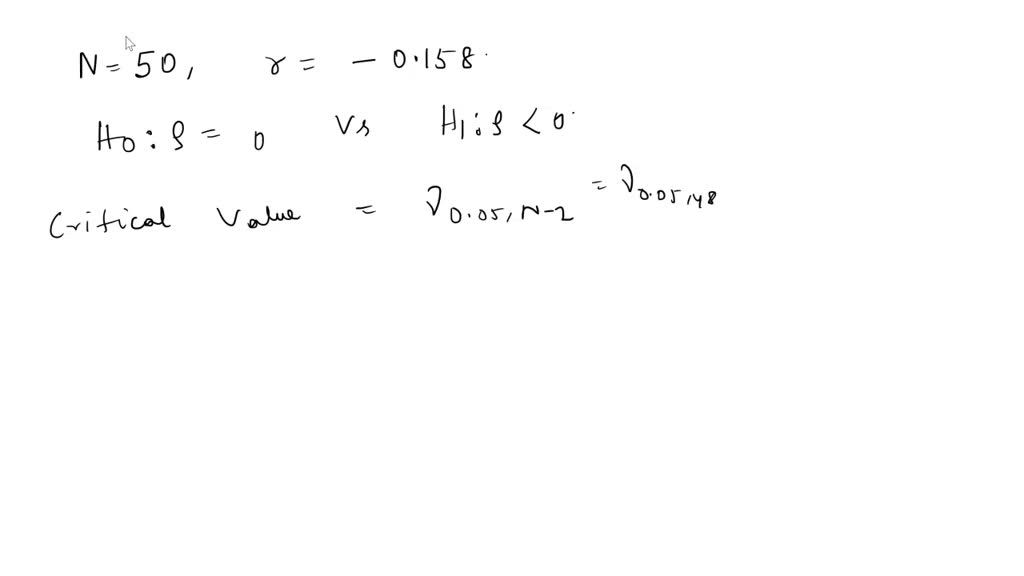 N = 50, r = - 0.158
H0 : ρ = 0 vs H1 : ρ < 0
Critical Value = r0.05, N-2 = r0.05, 48